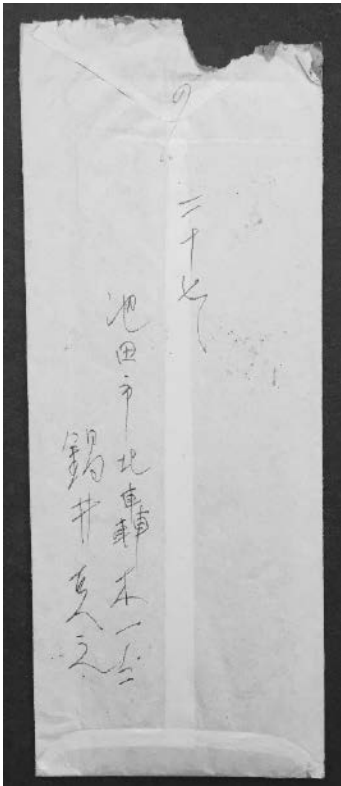 二十七日
池田市北轟木
鍋井克之